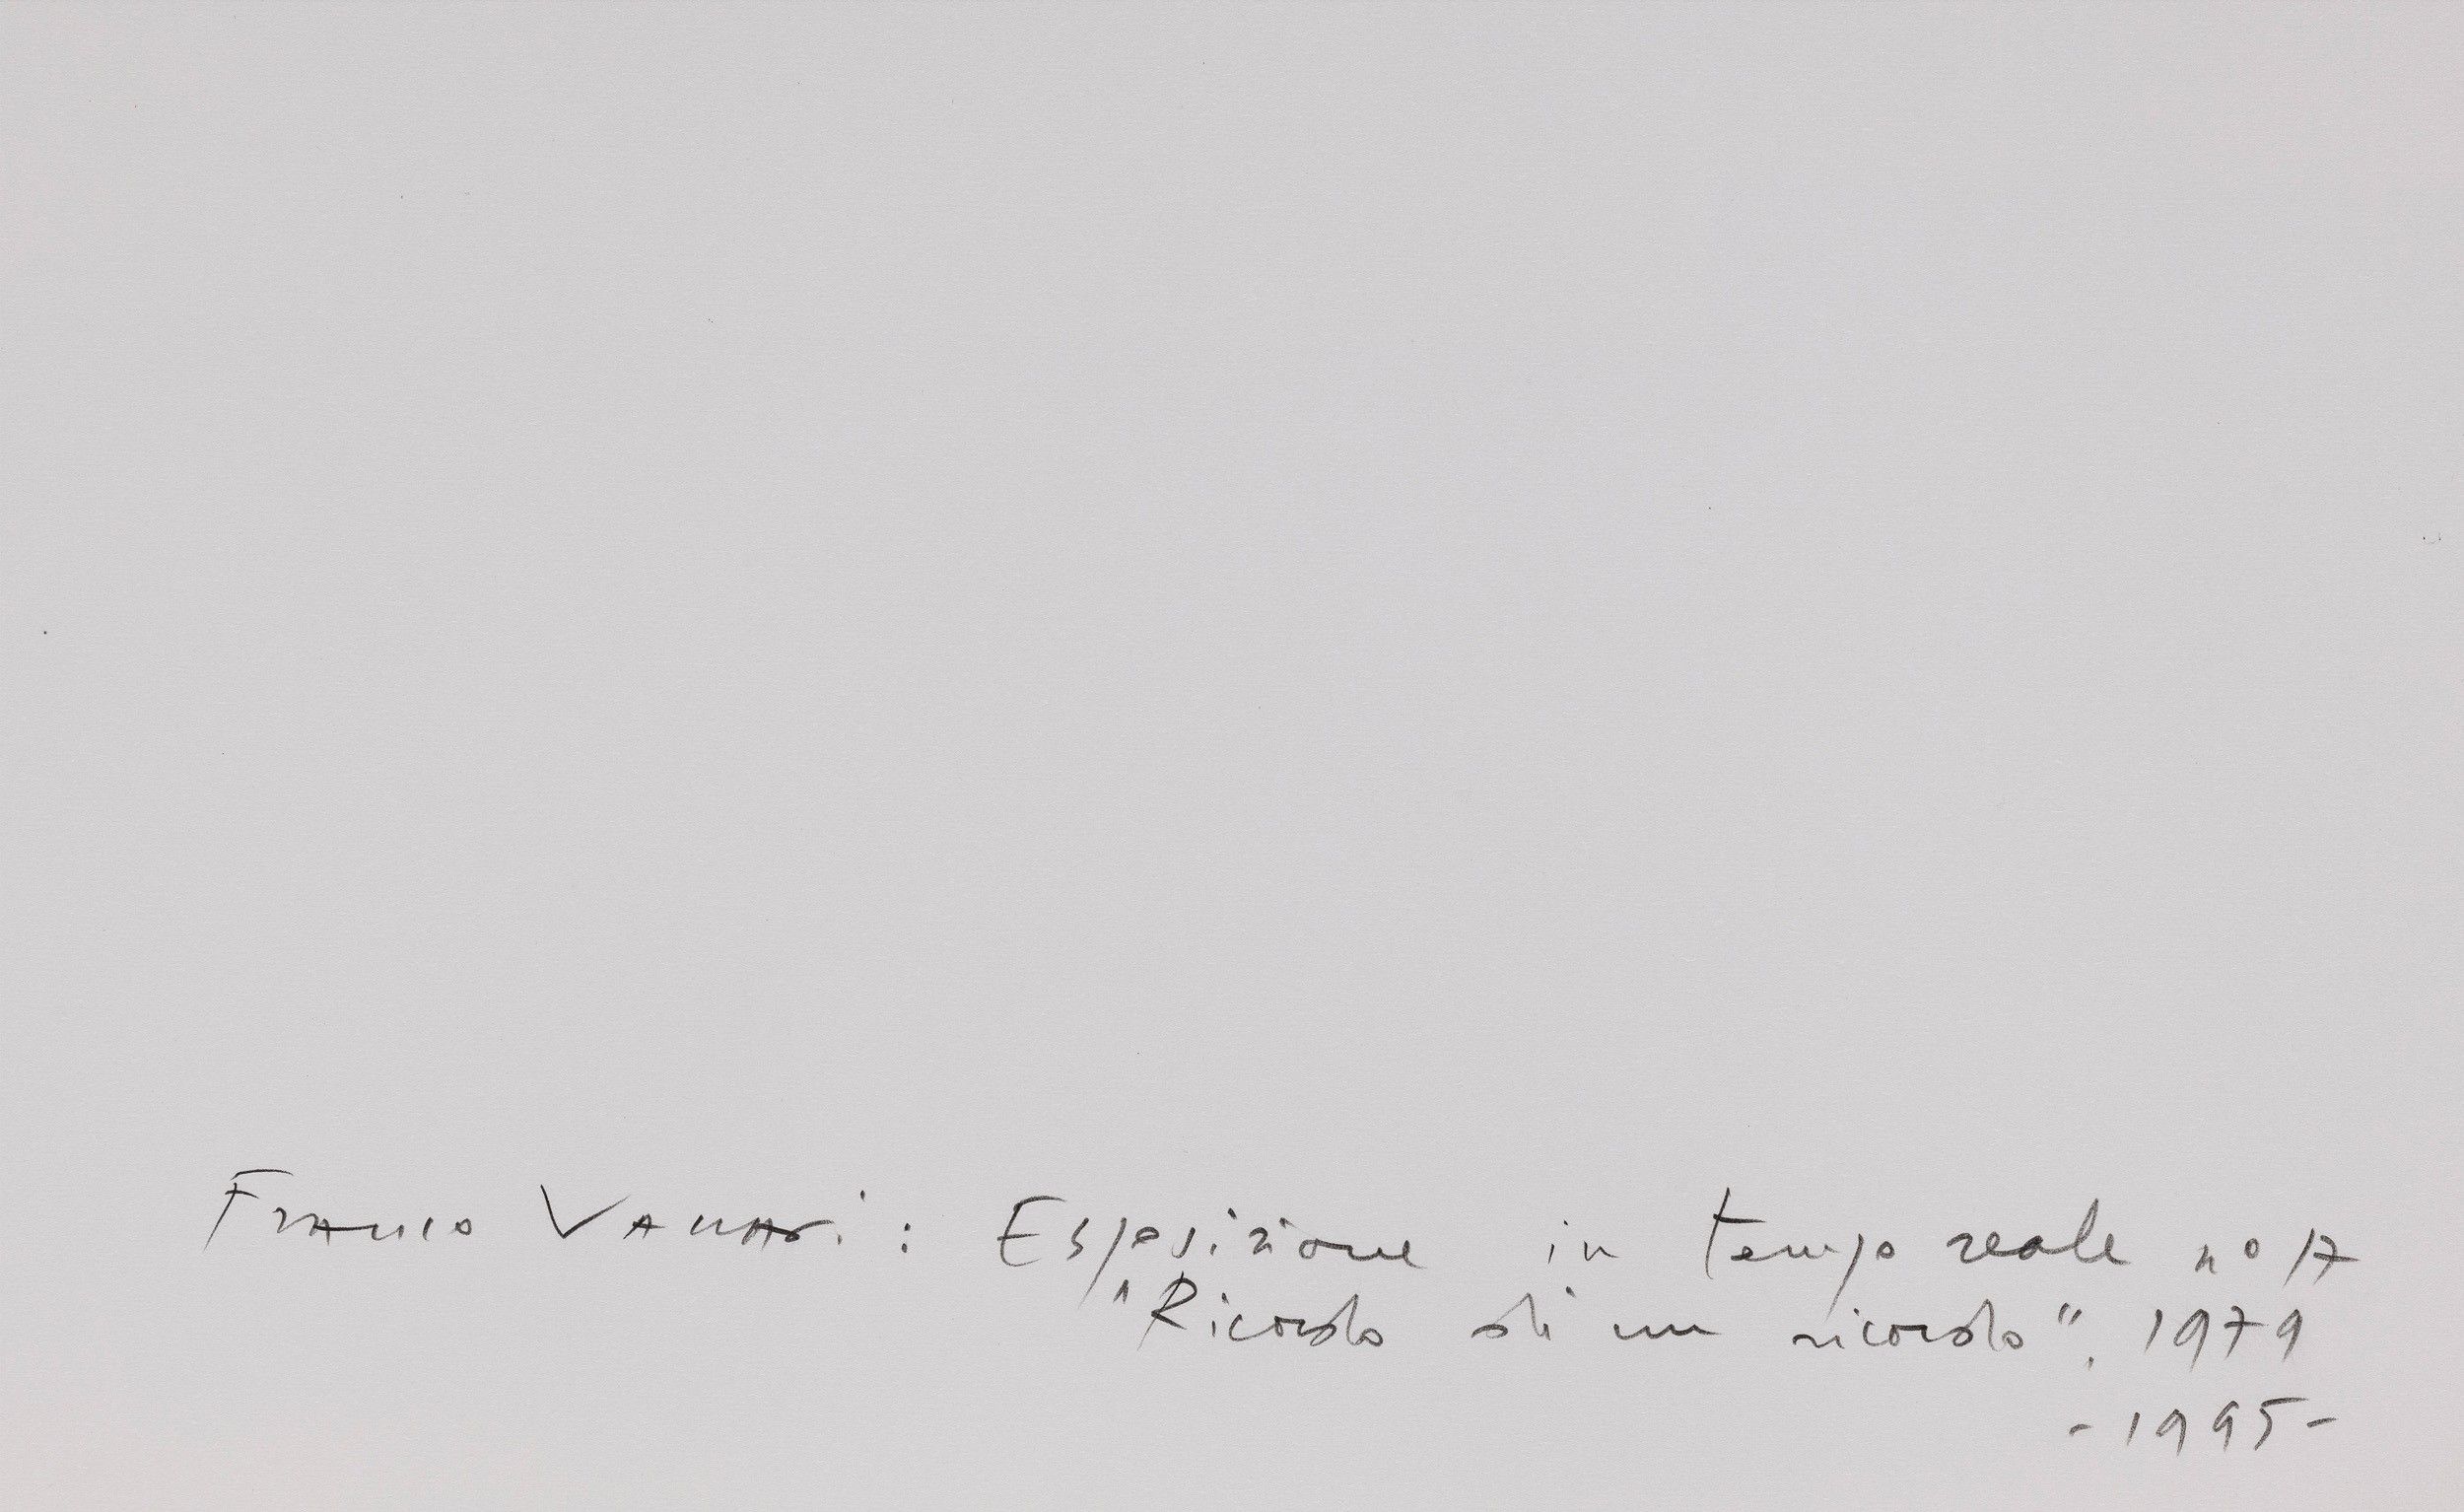 Franco Vaccari : Esposizione in tempo reale n° 17
"Ricordo di un ricordo". 1979
- 1995 -